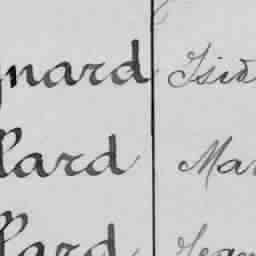 gnard Isid
llard Mar
llard Jean